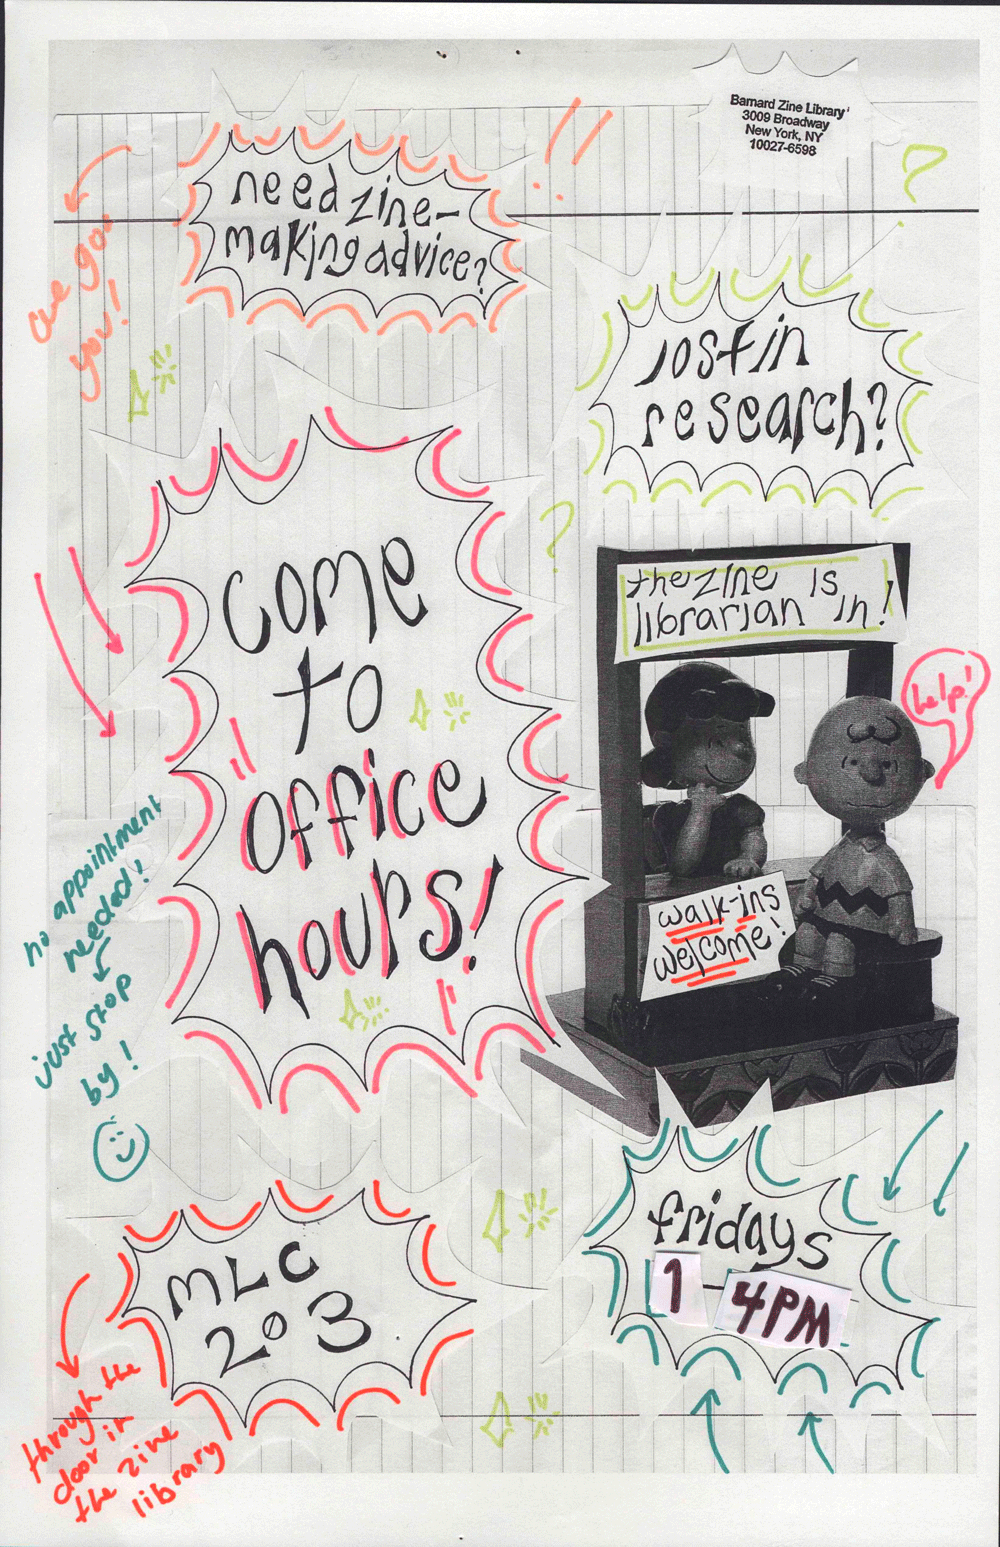 Barnard Zine Library
3009 Broadway
New York, NY
10027-6598
need zine-
making advice?
we got
you!
lost in
research?
come
to
office
hours!
the zine is
librarian in!
help!
walk-ins
welcome!
no appointment
needed!
just stop
by!
MLC
203
through the
door in
the zine
library
fridays
1-4PM